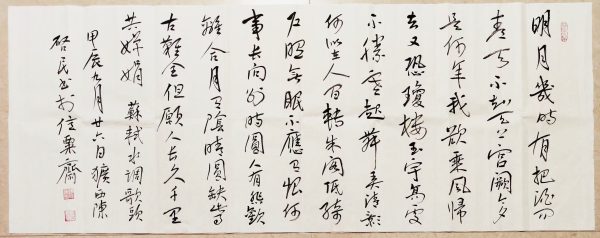 明月幾時有把酒问
青天不知天上宫阙今夕
是何年我欲乘风归
去又恐瓊樓玉宇高处
不勝寒起舞弄清影
何似人间转朱阁低绮
户照无眠不应有恨何
事长向别時圆人有悲歡
離合月有陰晴圆缺此事
古難全但願人长久千里
共嬋娟 蘇軾水调歌頭
甲辰九月廿六日西陳
启民书於信粟齋